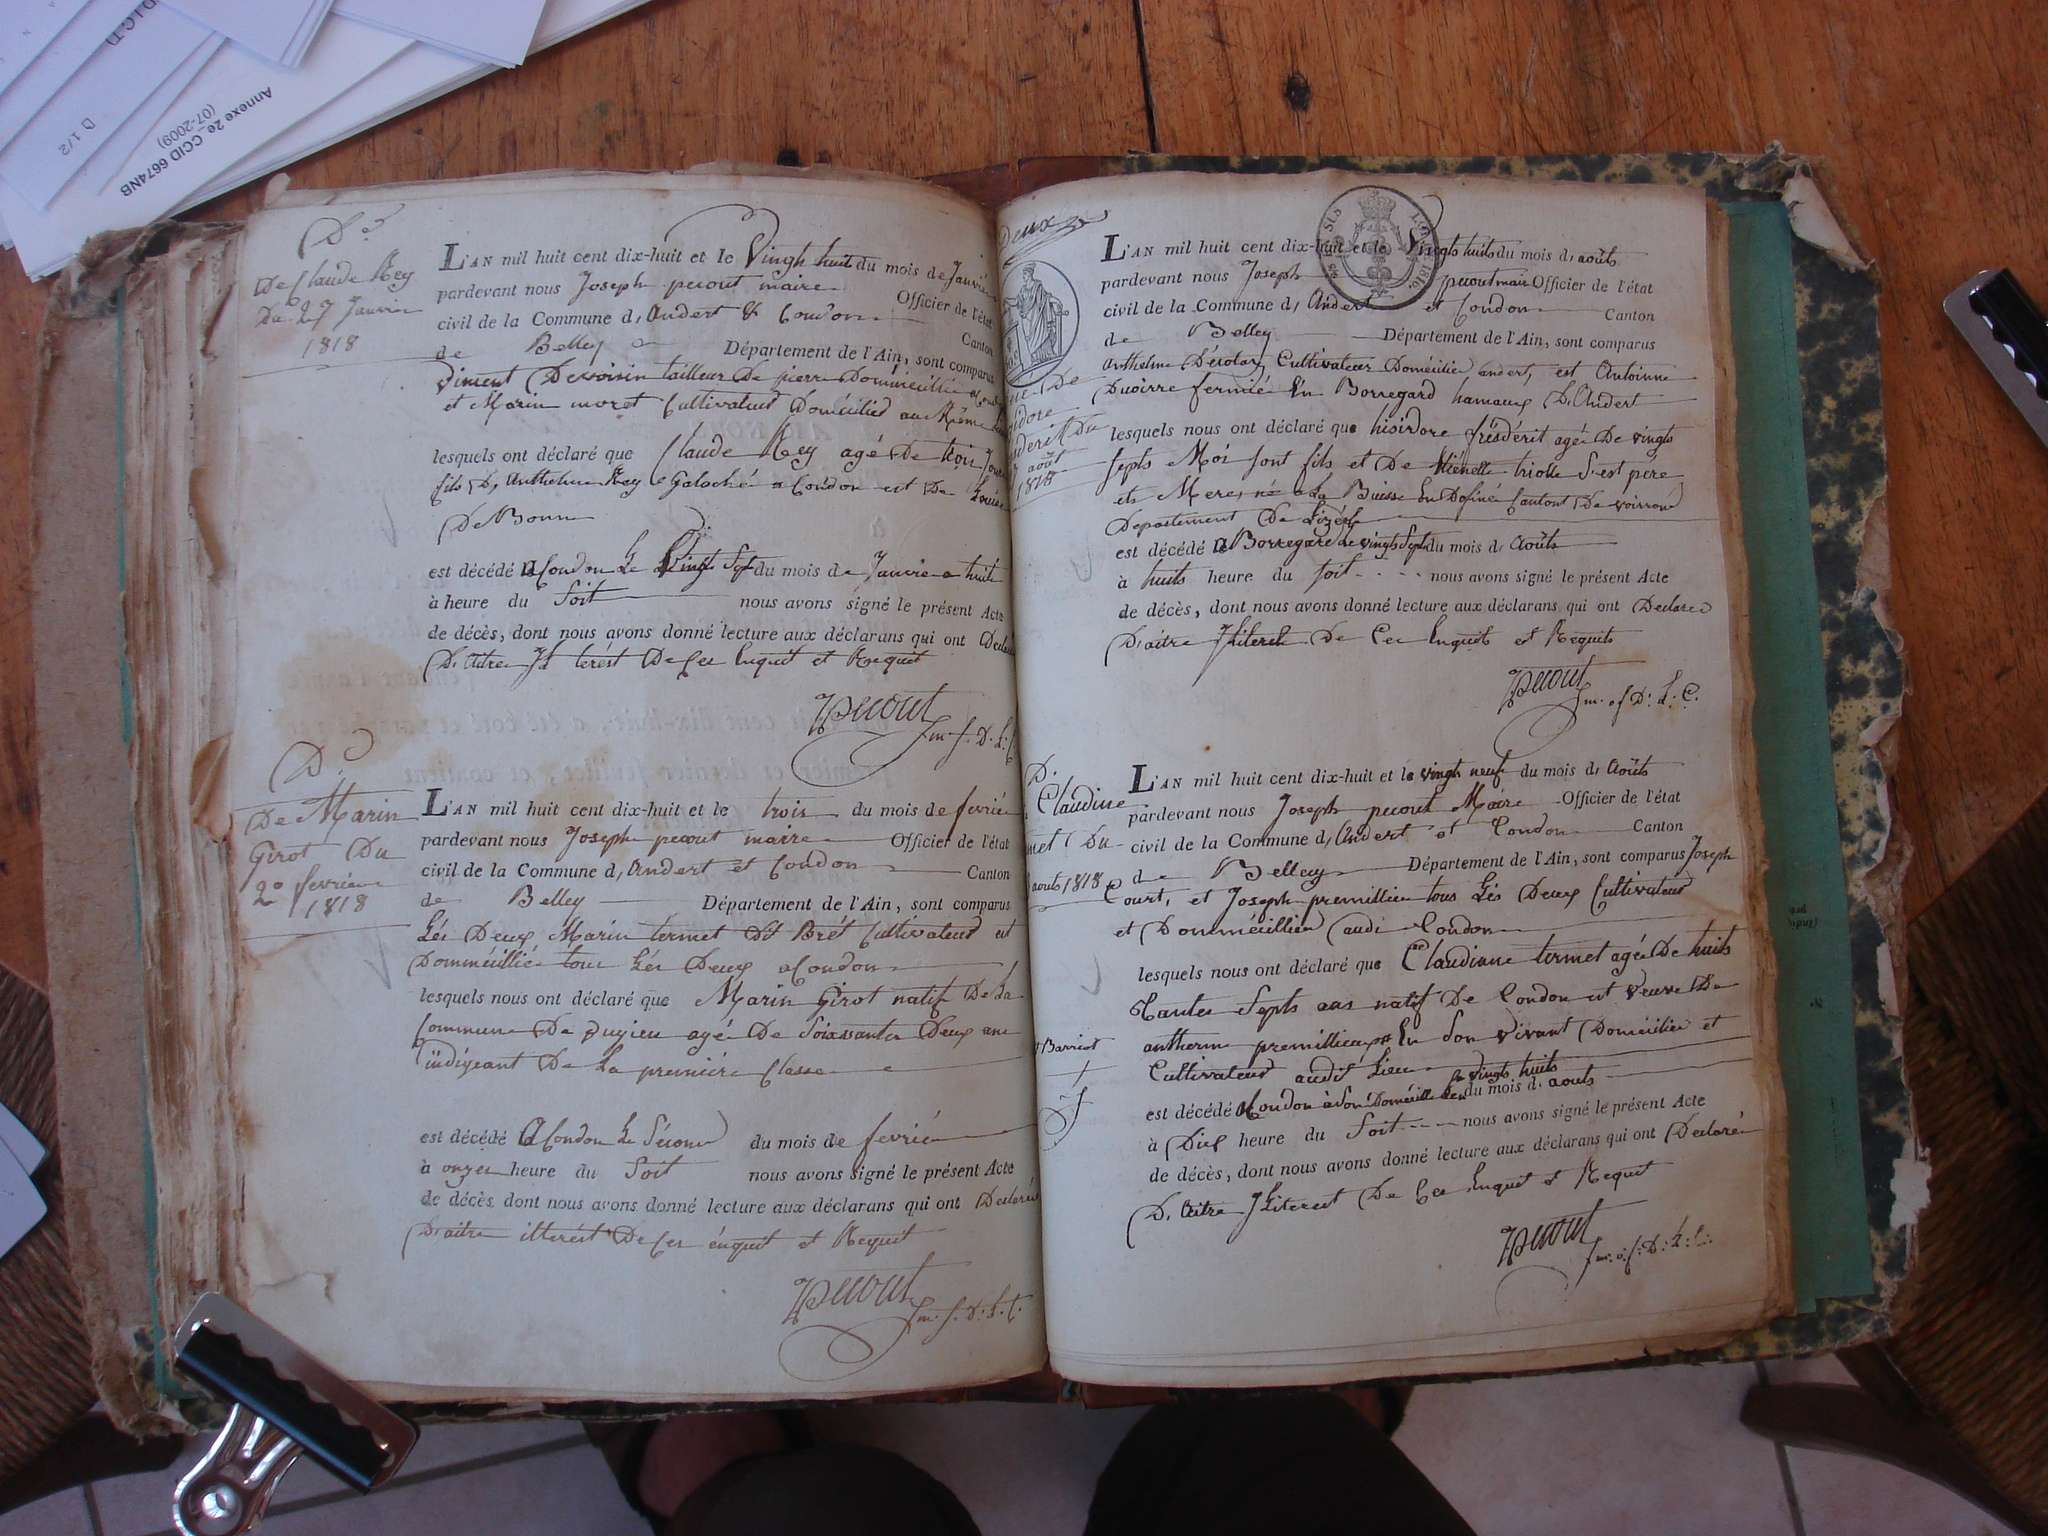 D.I.C.T)
D 1/2
Annexe 2e_CCID 6674NB
(07-2009)
De Claude Rey
Du 27 Janvier
1818
L'AN mil huit cent dix-huit et le Vingh huit du mois de Janvié
pardevant nous Joseph pecout maire Officier de l'état
civil de la Commune d, Andert & Condon Canton
de Belley Département de l'Ain, sont comparus
Devoisin tailleur De pierre Domméillié
et Marin moret Cultivateur Domicilié au Même
lesquels nous ont déclaré que Claude Rey agé De troi Jour
fils D, Anthelme Rey Galoché a Condon est De Louise
De Bonne
est décédé A Condon Le Vingt Sept du mois de Janvie a huit
à heure du Soit nous avons signé le présent Acte
de décès, dont nous avons donné lecture aux déclarans qui ont Declaré
De Ces Enquit et Requit
Jpecout
m. f. D. L. C.
De Marin
Girot Du
2e fevrier
1818
L'AN mil huit cent dix-huit et le trois du mois de fevrié
pardevant nous Joseph pecout maire Officier de l'état
civil de la Commune d, Andert et Condon Canton
de Belley Département de l'Ain, sont comparus
Lés Deux Marin termet dit Brét Cultivateur et
Domméillié tous Lés Deux a Condon
lesquels nous ont déclaré que Marin Girot natif De La
Commune De pugieu agé De Soixsante Deux ans
indigeant De La premiére Classe
est décédé A Condon Le Second du mois de fevrié
à onzes heure du Soit nous avons signé le présent Acte
de décès dont nous avons donné lecture aux déclarans qui ont Declaré
D'aitre De Ces énquit et Requit
Jpecout
m. f. D. L. C.
Deux
L'AN mil huit cent dix-huit et le Vingts huits du mois d, aoûts
pardevant nous Joseph pecout mair Officier de l'état
civil de la Commune d, Andert et Condon Canton
de Belley Département de l'Ain, sont comparus
Anthelme Cultivateur Doméilié andert, est Antoinne
fermié En Borregard hamaux D, Andert
aoît
1818
lesquels nous ont déclaré que hisirdore frésdérit agé De vingts
septs Moi sont fils et De triolle S'est pere
ets Mere, né a La Buisse En Dofiné Cantont De voirron
Departement De Lizére
est décédé A Borregard Le vingts Sept du mois d, Aoûts
à huits heure du soit nous avons signé le présent Acte
de décès, dont nous avons donné lecture aux déclarans qui ont Declaré
D'aitre De Ces Enquits et Requits
Jpecout
m. of D. L. C.
D.
Claudine
met Du
aouts 1818
L'AN mil huit cent dix-huit et le vingts neuf du mois d, Aoûts
pardevant nous Joseph pecout Maire Officier de l'état
civil de la Commune d, Andert et Condon Canton
de Belley Département de l'Ain, sont comparus Joseph
Court, et Joseph premillieu tous Lés Deux Cultivateur
et Domméillieu audi Condon
lesquels nous ont déclaré que Claudinne termet agée De huits
Tantes Septs ans natif De Condon est veuve De
antherme premillieu En Son vivant Doméilié et
Cultivateur audit Lieu
Barriot
est décédé A Condon à Son Doméille Le vingts huits du mois d, aouts
à Dix heure du Soit nous avons signé le présent Acte
de décès, dont nous avons donné lecture aux déclarans qui ont Declaré
D, Aitre De Ces Enquet et Requit
Jpecout
m. o. f. D. L. C.